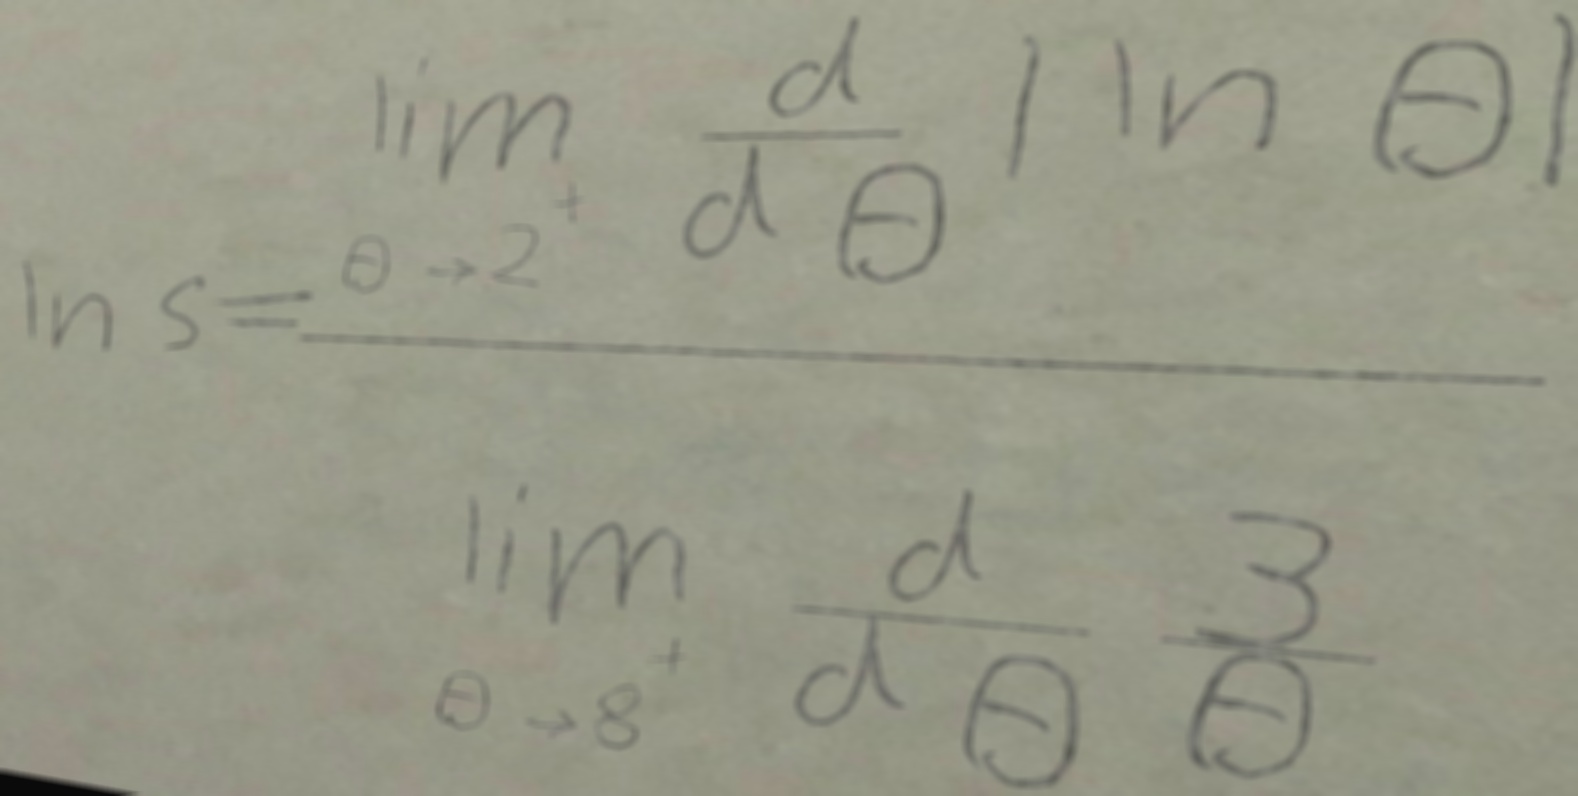 ln s = \frac{\lim_{\theta \to 2^+} \frac{d}{d\theta} |\ln \theta|}{\lim_{\theta \to 8^+} \frac{d}{d\theta} \frac{3}{\theta}}